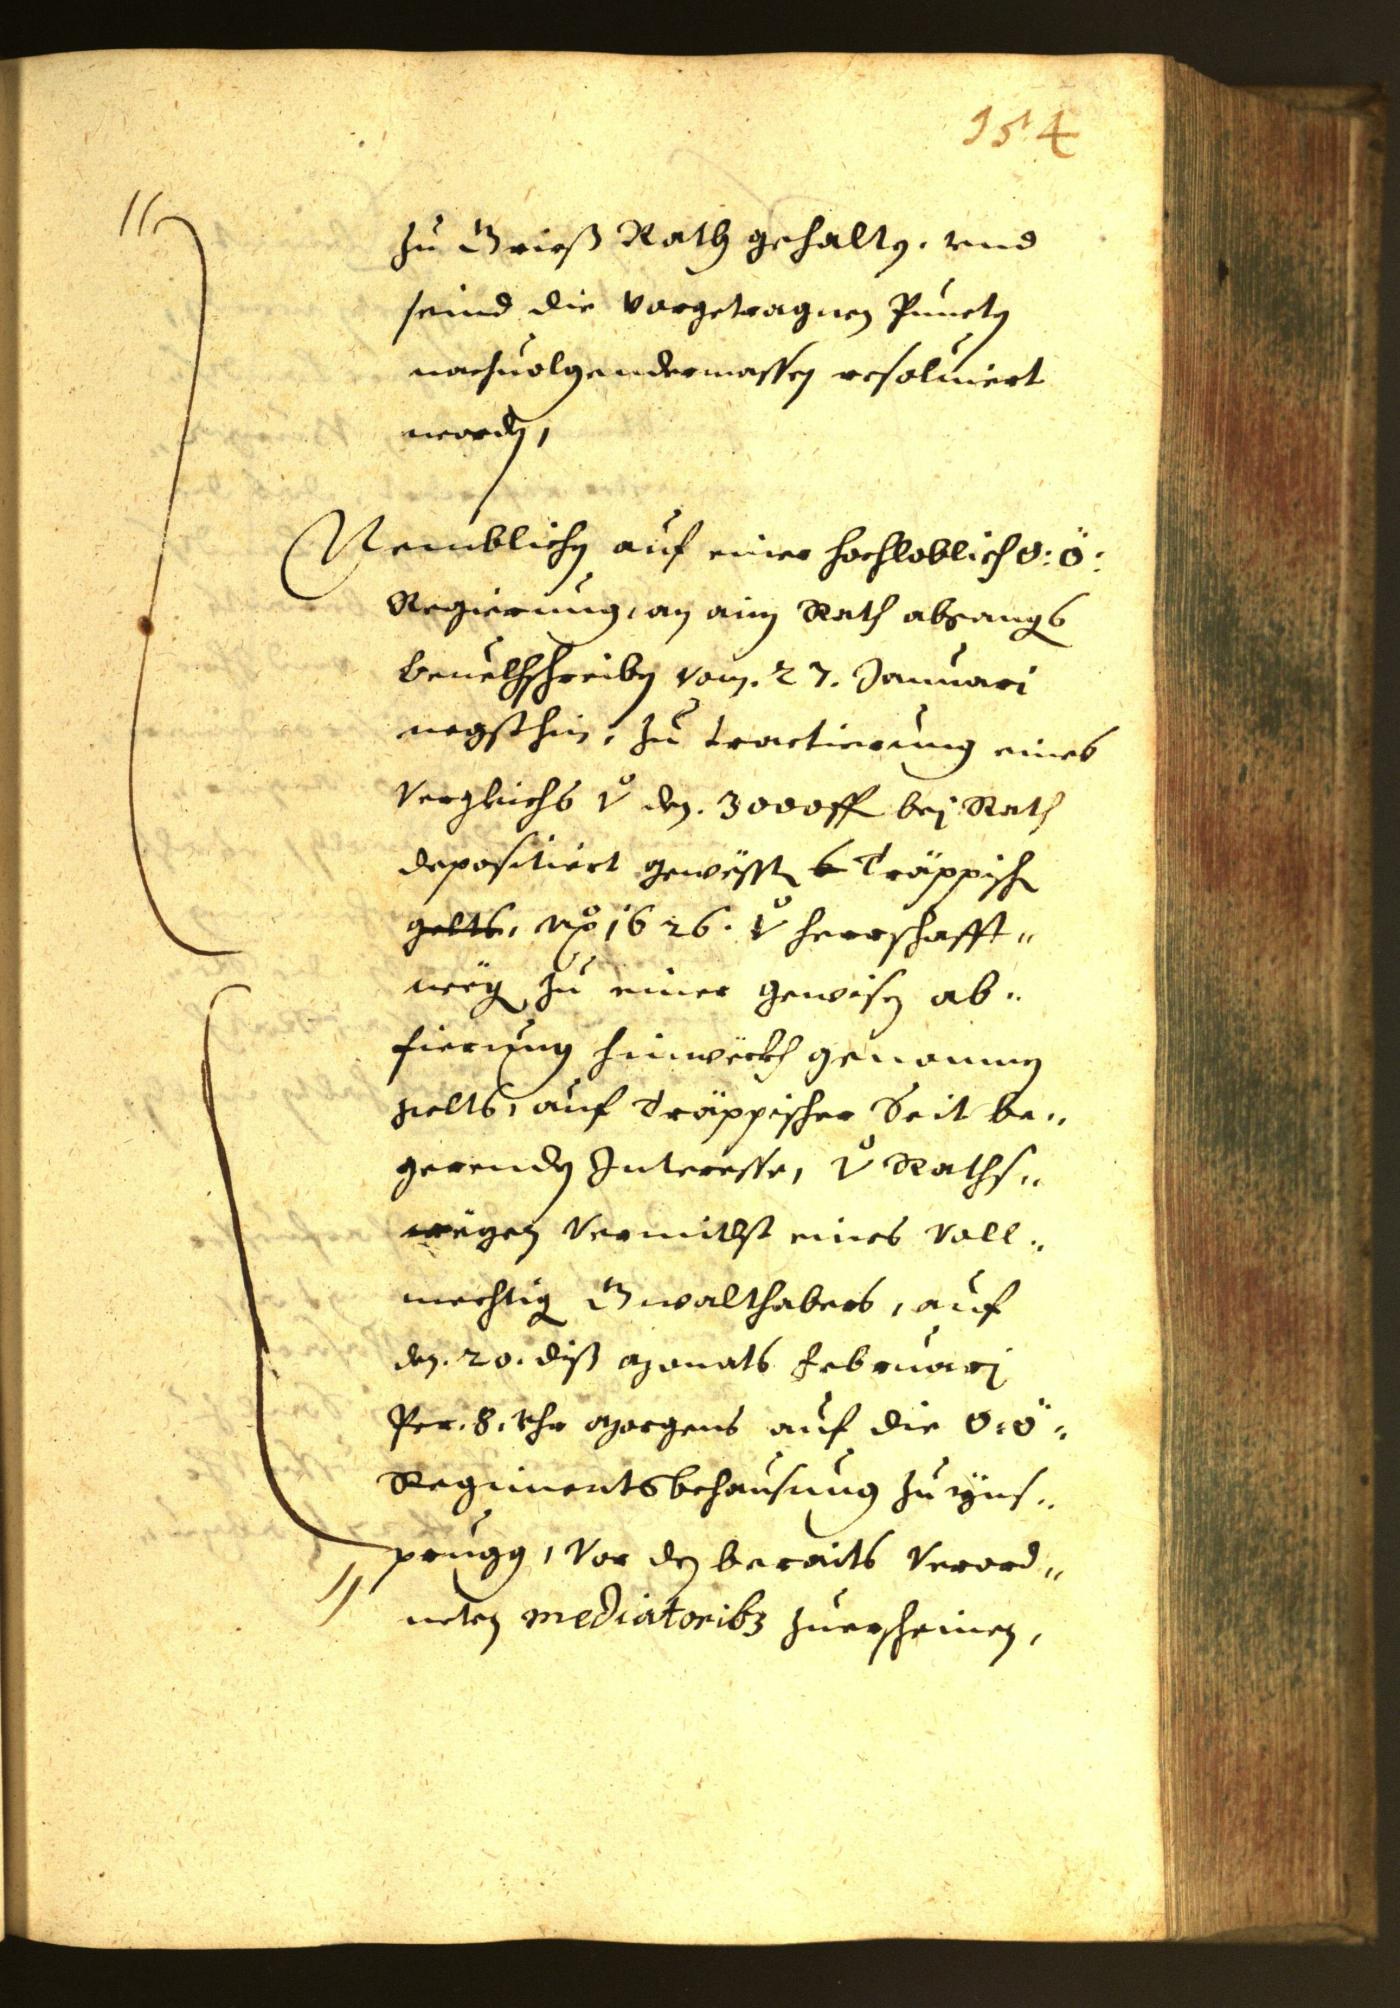 154
zu Grieß Rath gehalten, vnd
seind die vorgetragnen Puncten
nachuolgendermassen resoluiert
worden,
Nemblichen auf einer hochloblich O: Ö:
Regierung, an ain Rath abgangs
beuelchschreiben vom. 27. Januari
negsthin, zu tractierung eines
Vergleichs v̊ den. 3000 fl bej Rath
depositiert gewësten Träppisch
gelts, Aõ 1626. v̊ herrschafft„
weeg zu einer gewisen ab„
fierung hinwëckh genomen
gelts, auf Träppischer Seit be„
gerenden Interesse, v̊ Raths„
wegen vermitlst eines voll„
mechtig Gwalthabers, auf
den. 20. diß Monats Februarj
Per. 8. Vhr Morgens auf die O: Ö„
Regimentsbehausung zu Yns„
prugg, vor den beraits verord„
neten mediatorib3 zuerscheinen,